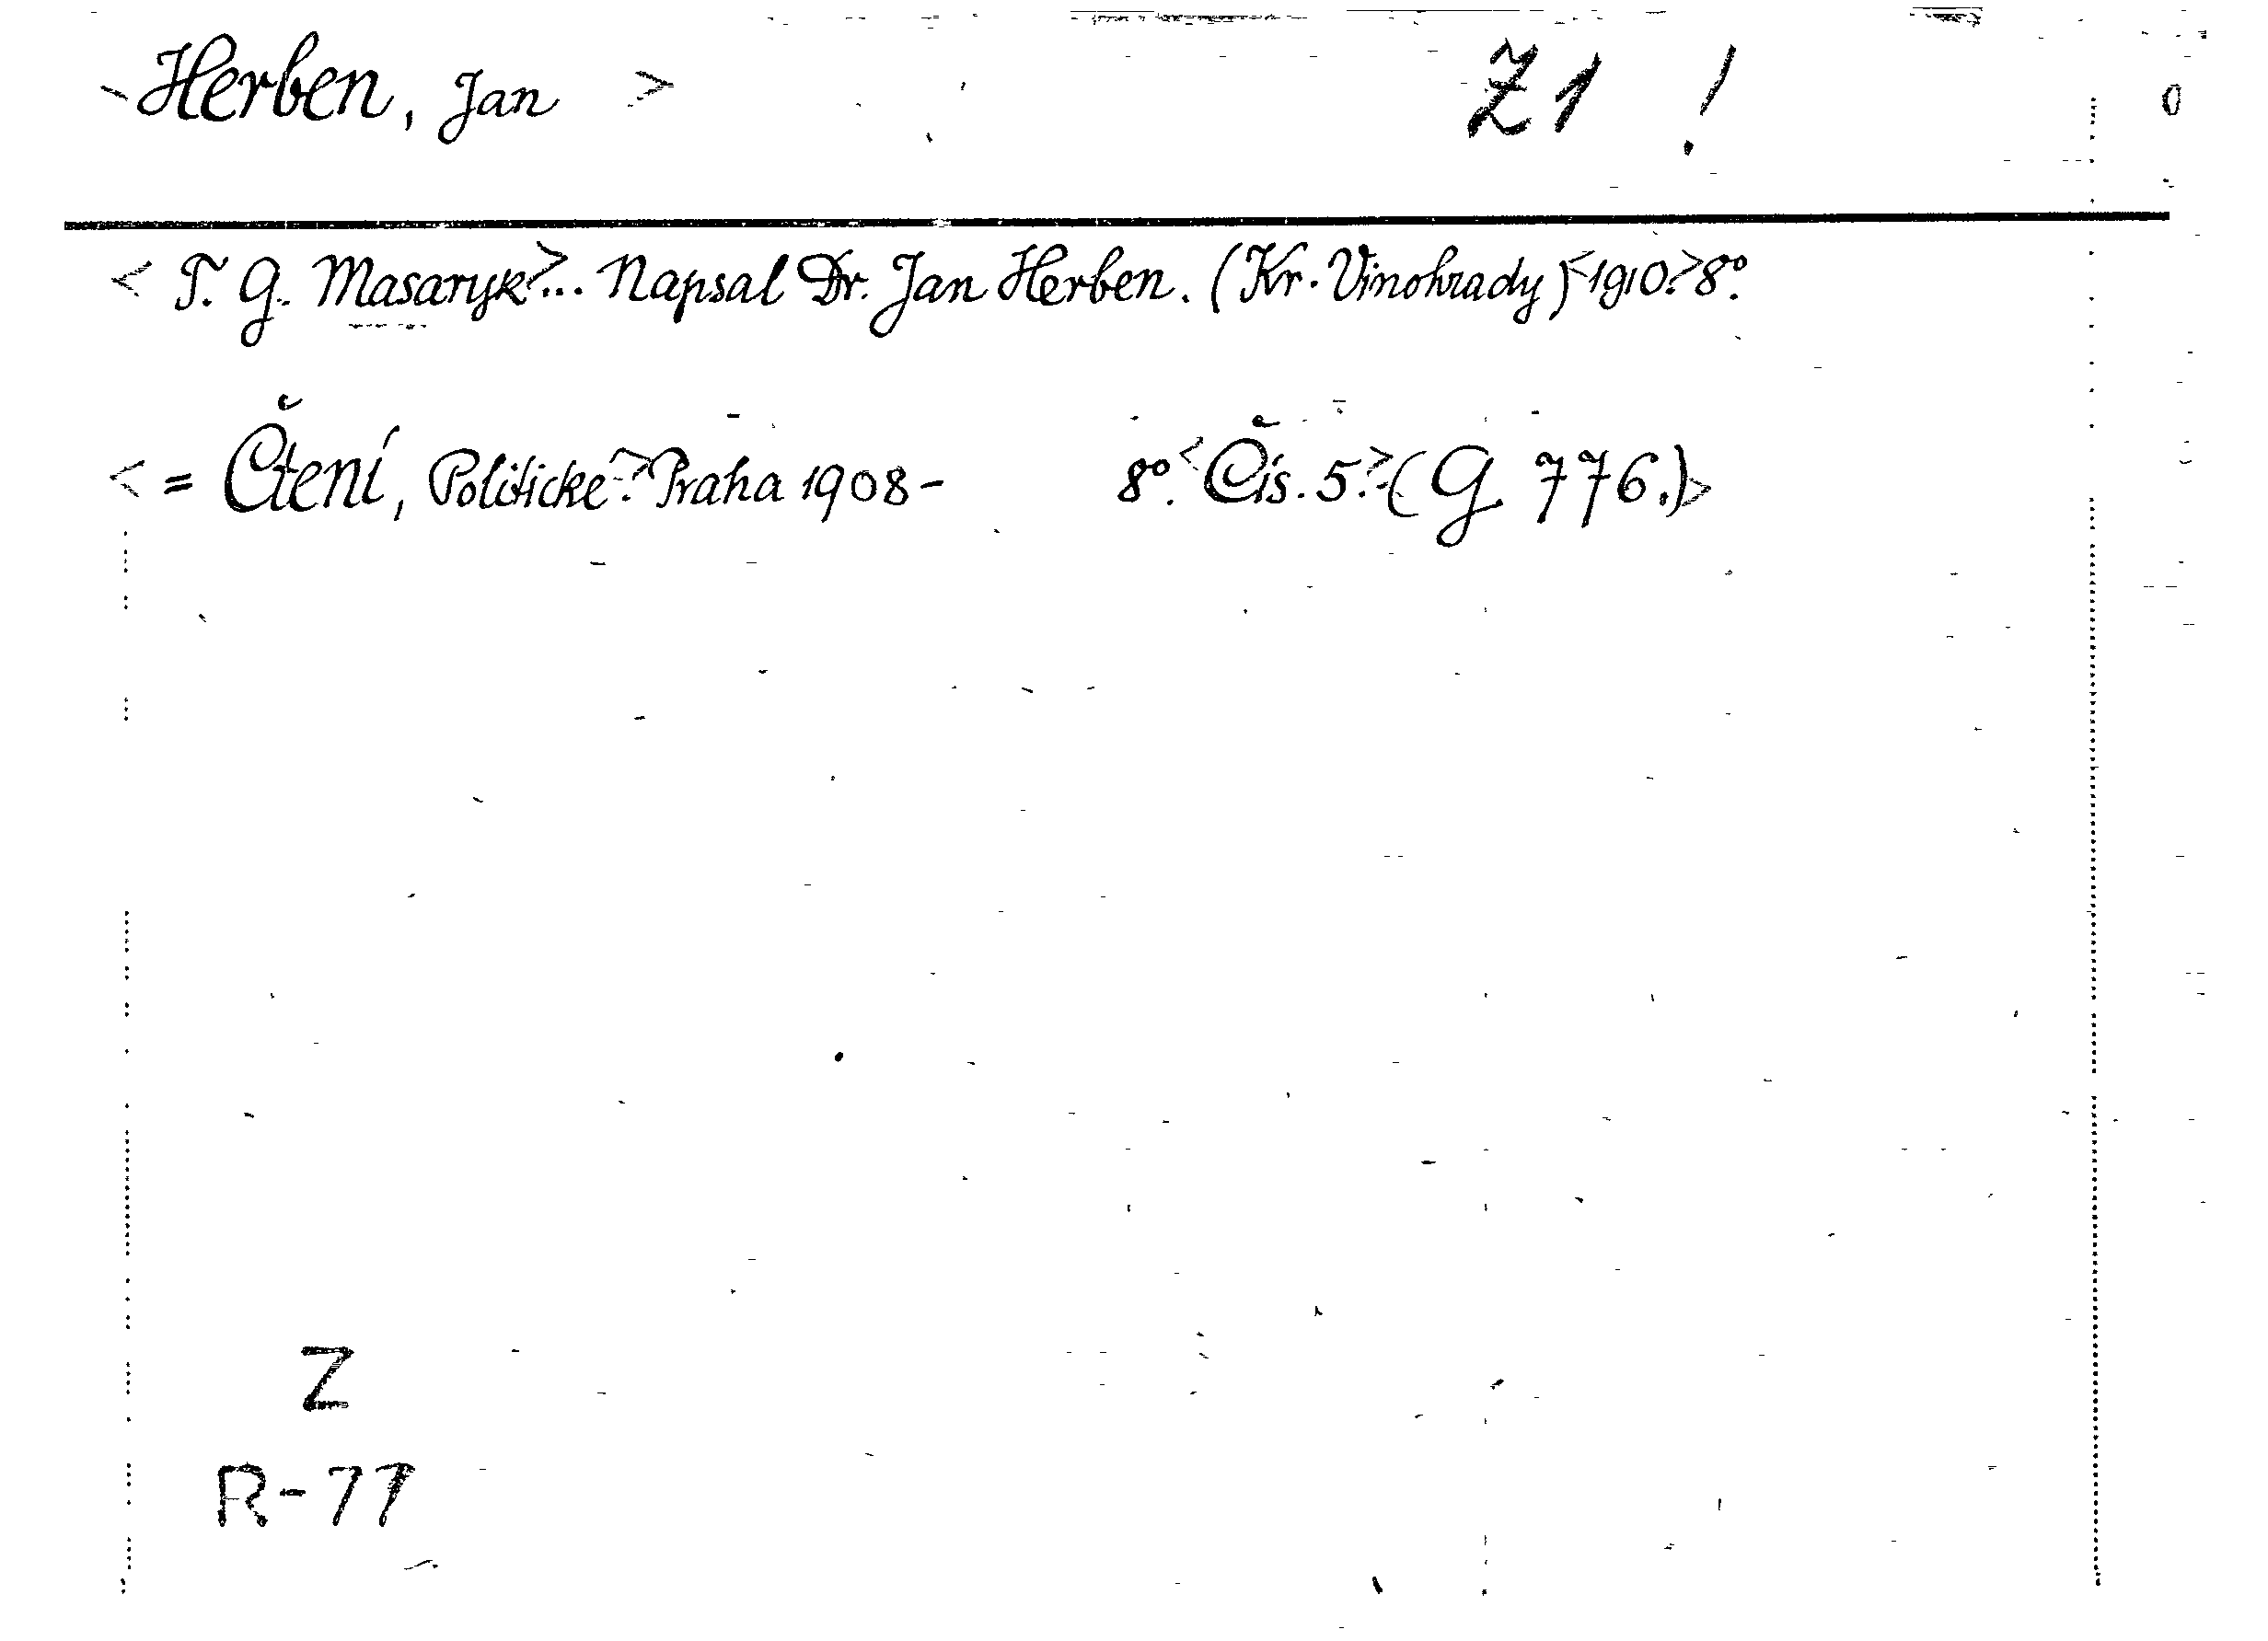 <Herben, Jan> Z1 ! 0
<T. G. Masaryk>... Napsal Dr. Jan Herben. (Kr. Vinohrady) <1910.> 8º.
<= Čtení, Politické.> Praha 1908- 8º. <Čís. 5.> (G. 776.)>
Z
R-77